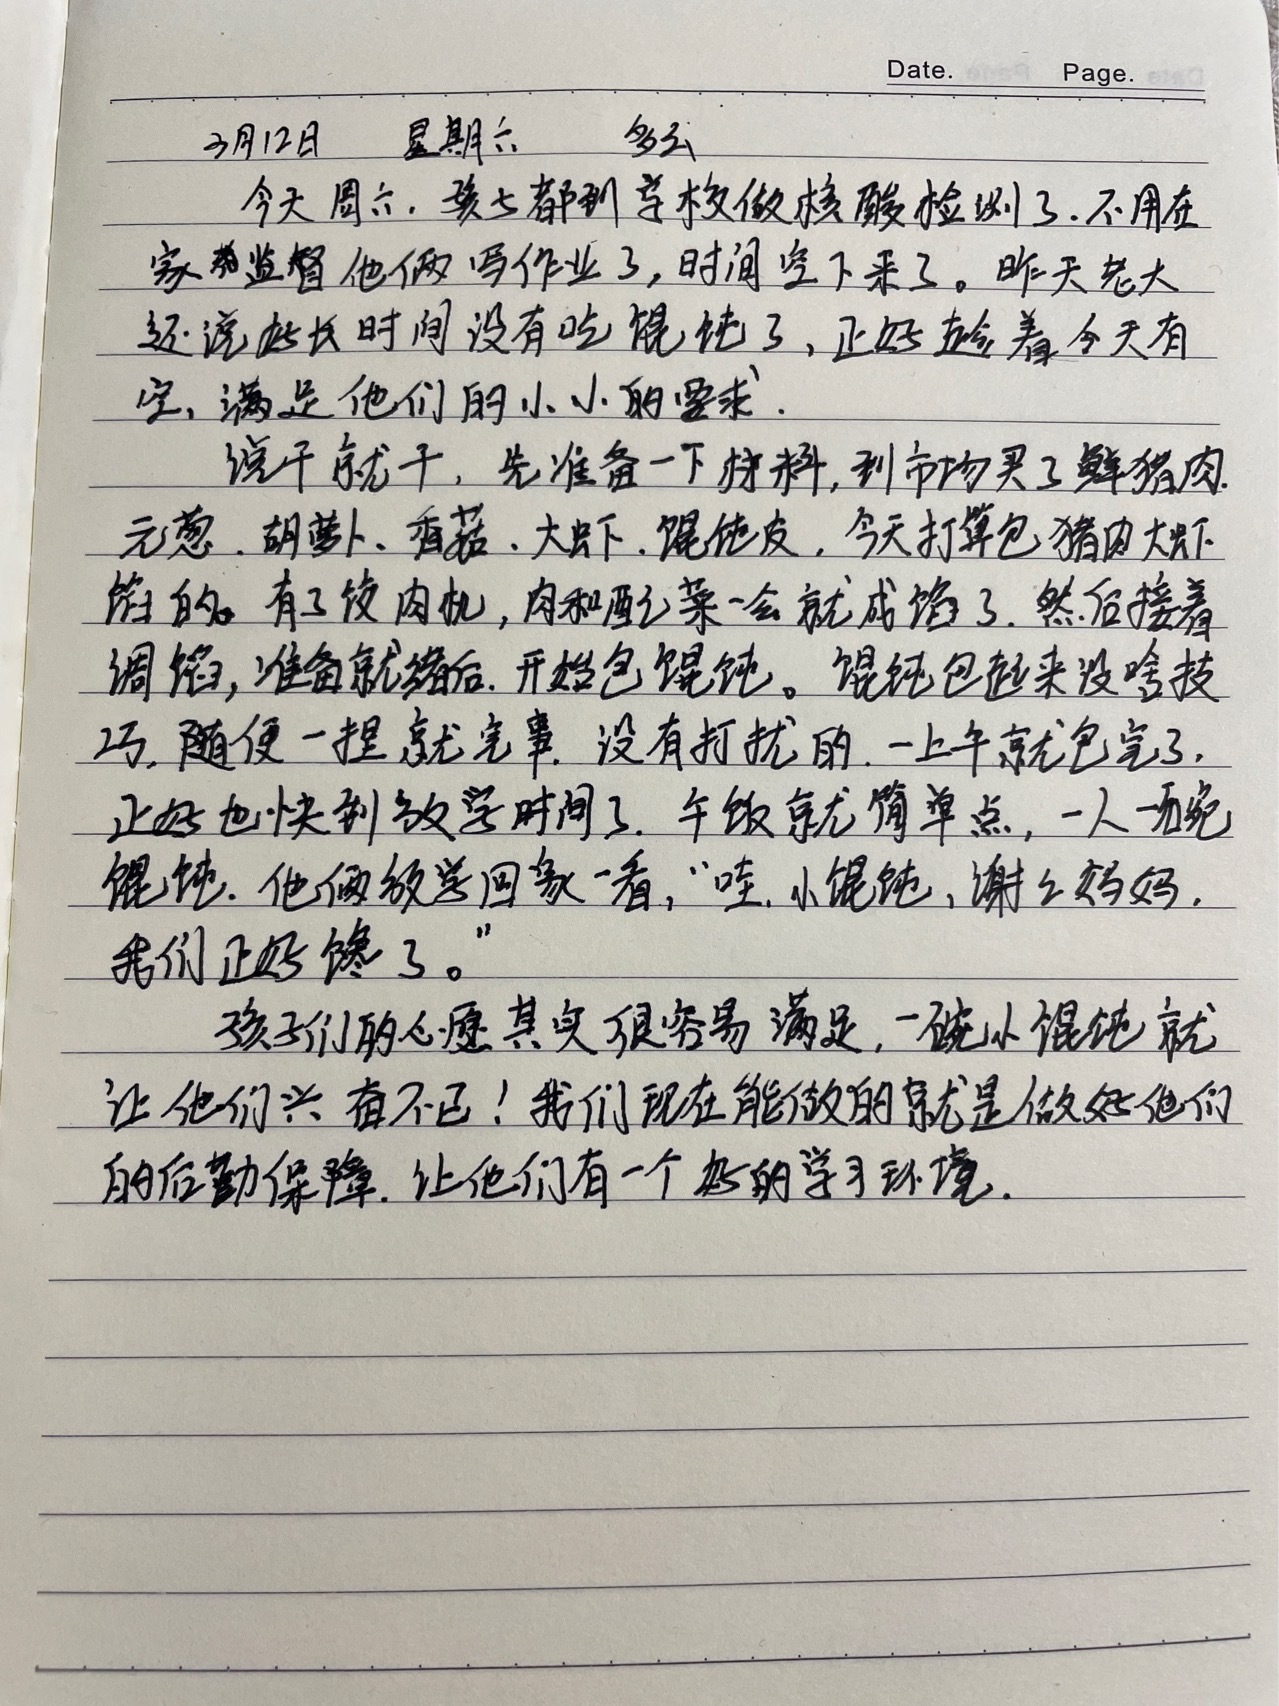 Date. Page.
3月12日 星期六 多云
今天周六.孩子都到学校做核酸检测了.不用在
家监督他俩写作业了,时间空下来了。昨天老大
还说好长时间没有吃馄饨了,正好趁着今天有
空,满足他们的小小的要求.
说干就干,先准备一下材料,到市场买了鲜猪肉.
元葱.胡萝卜、香菇、大虾.馄饨皮,今天打算包猪肉大虾
馅的。有了饺肉机,肉和配菜一会就成馅了.然后接着
调馅,准备就绪后.开始包馄饨。馄饨包起来没啥技
巧.随便一捏就完事.没有打扰的.一上午就包完了,
正好也快到放学时间了.午饭就简单点,一人一碗
馄饨.他俩放学回家一看,“哇,小馄饨,谢谢妈妈,
我们正好馋了。”
孩子们的心愿其实很容易满足,一碗小馄饨就
让他们兴奋不已!我们现在能做的就是做好他们
的后勤保障.让他们有一个好的学习环境.